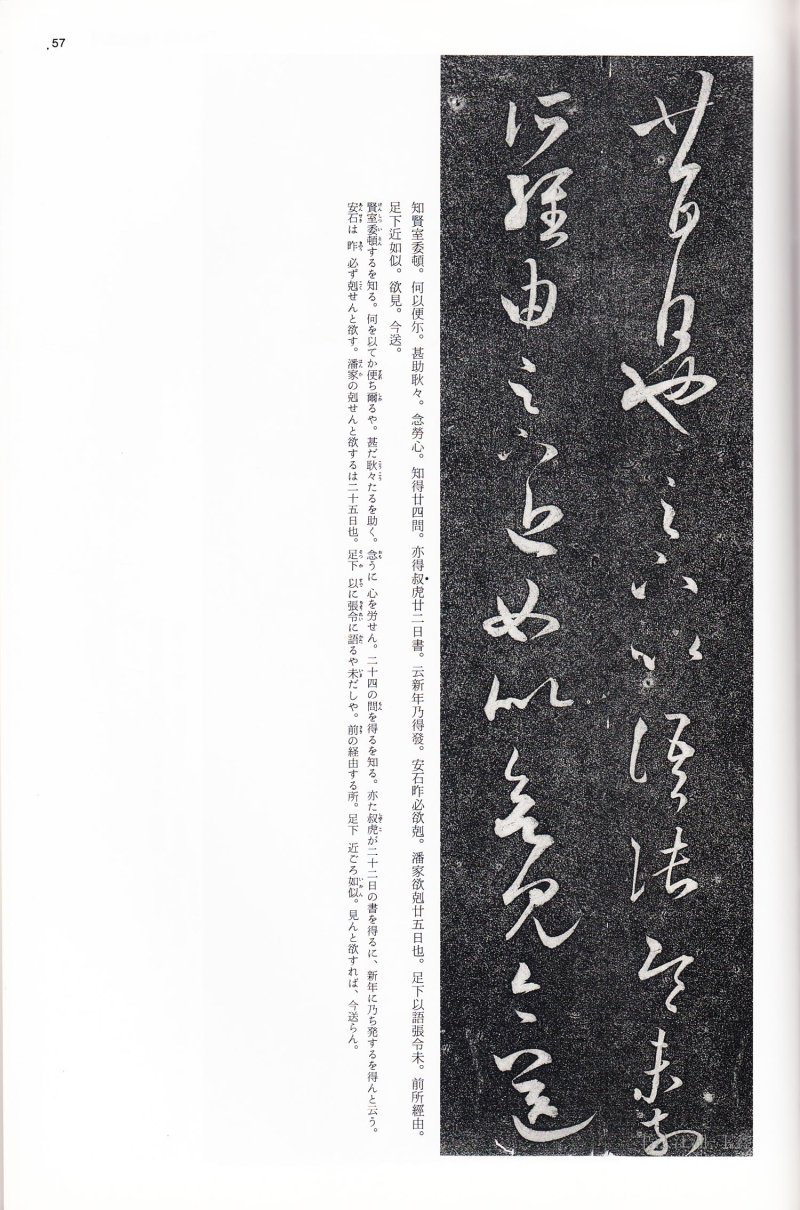 57
廿五日也足下以語張令未前
所經由足下近如似欲見今送
知賢室委頓。何以便尓。甚助耿々。念勞心。知得廿四問。亦得叔虎廿二日書。云新年乃得發。安石昨必欲剋。潘家欲剋廿五日也。足下以語張令未。前所經由。
足下近如似。欲見。今送。
賢室委頓するを知る。何を以てか便ち爾るや。甚だ耿々たるを助く。念うに 心を労せん。二十四の問を得るを知る。亦た叔虎が二十二日の書を得るに、新年に乃ち発するを得んと云う。
安石は 昨 必ず剋せんと欲す。潘家の剋せんと欲するは二十五日也。足下 以に張令に語るや未だしや。前の経由する所。足下 近ごろ如似。見んと欲すれば、今送らん。